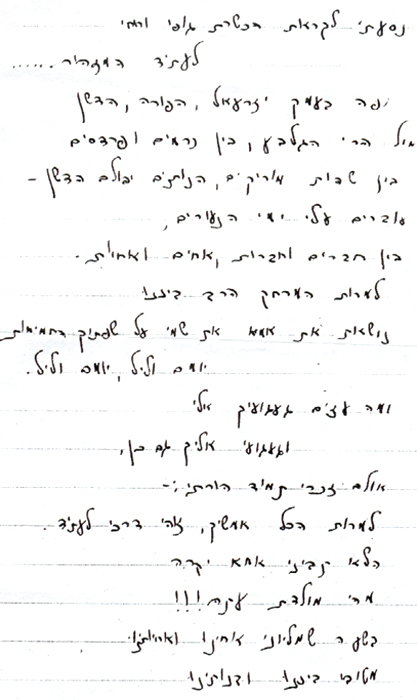 נסעתי לקראת הכשרת גופי ורוחי
לעתיד המזהיר......
ופה בעמק יזרעאל, הפורה, הדשן
מול הרי הגלבוע, בין כרמים ופרדסים
בין שדות מוריקים, הנותנים יבולם הדשן -
עוברים עלי ימי הנעורים,
בין חברים וחברות, אחים ואחיות.
למרות המרחק הרב בינינו
נושאת את אמא את שמי על שפתיך החמימות
יומם וליל, יומם וליל.
ומה עצים געגועיך אלי
וגעגועי אליך גם כן,
אולם זכרי תמיד הורתי:-
למרות הכל אמשיך, זוהי דרכי לעתיד.
הלא תביני אמא יקרה
מהי מולדת עתה!!!
בשעה שמליוני אחינו ואחיותינו
מטובי בנינו ובנותינו